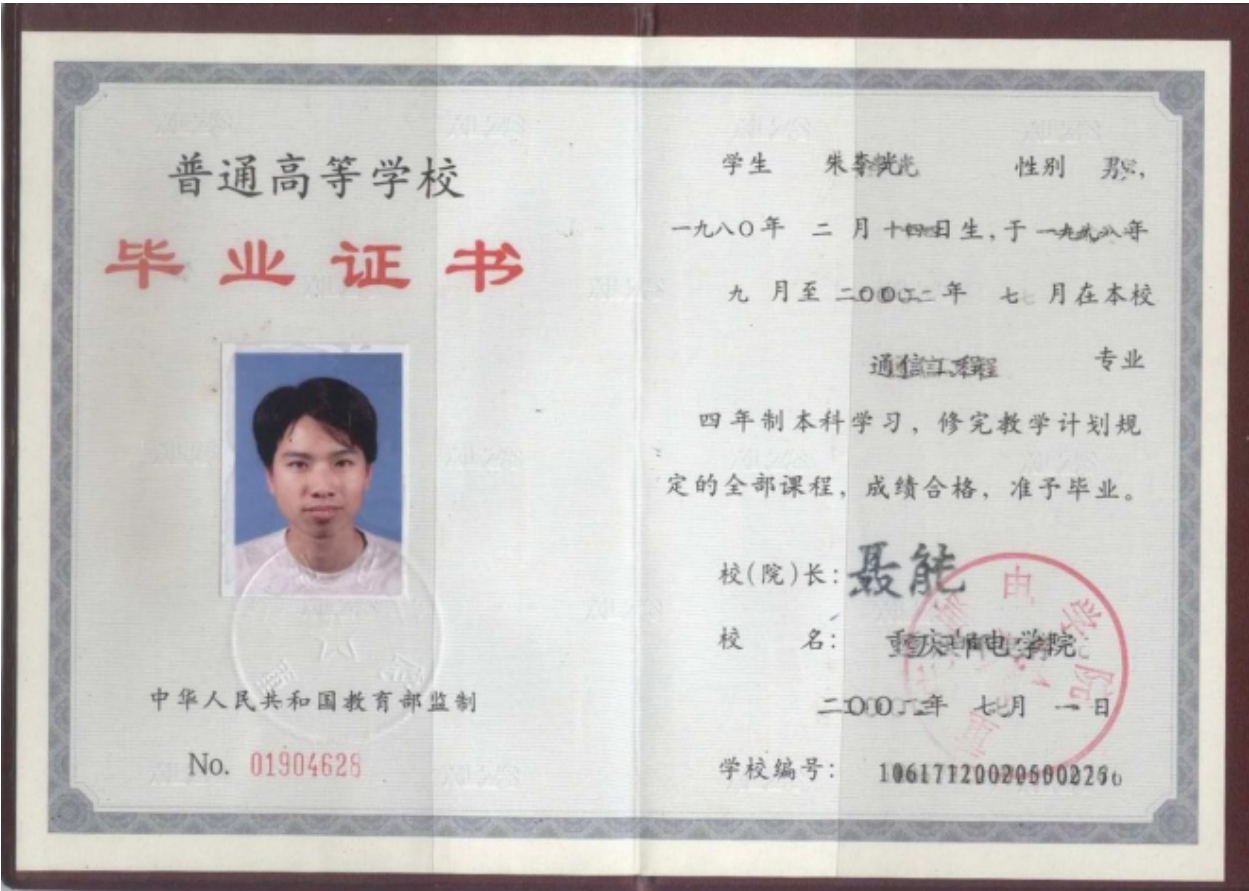 普通高等学校
毕业证书
中华人民共和国教育部监制
No. 01904628
学生 朱 性别 男,
一九八〇年 二 月 十四日生,于 一九九八年
九 月至 二〇〇二年 七 月在本校
通信工程 专业
四年制本科学习,修完教学计划规
定的全部课程,成绩合格,准予毕业。
校(院)长:聂能
校 名: 重庆邮电学院
二〇〇二年 七月 一日
学校编号: